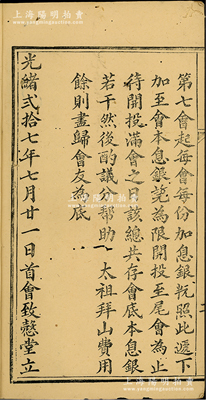 上海阳明拍卖
第七會起每會每份加息銀㐂照此遞下
加至會本息銀㐂為限開投至尾會為止
待開投滿會之日該總共存會底本息銀
若干然後酌議分帮助 太祖拜山費用
餘則盡歸會友為底
光緒弍拾七年七月廿一日首會致慤堂立